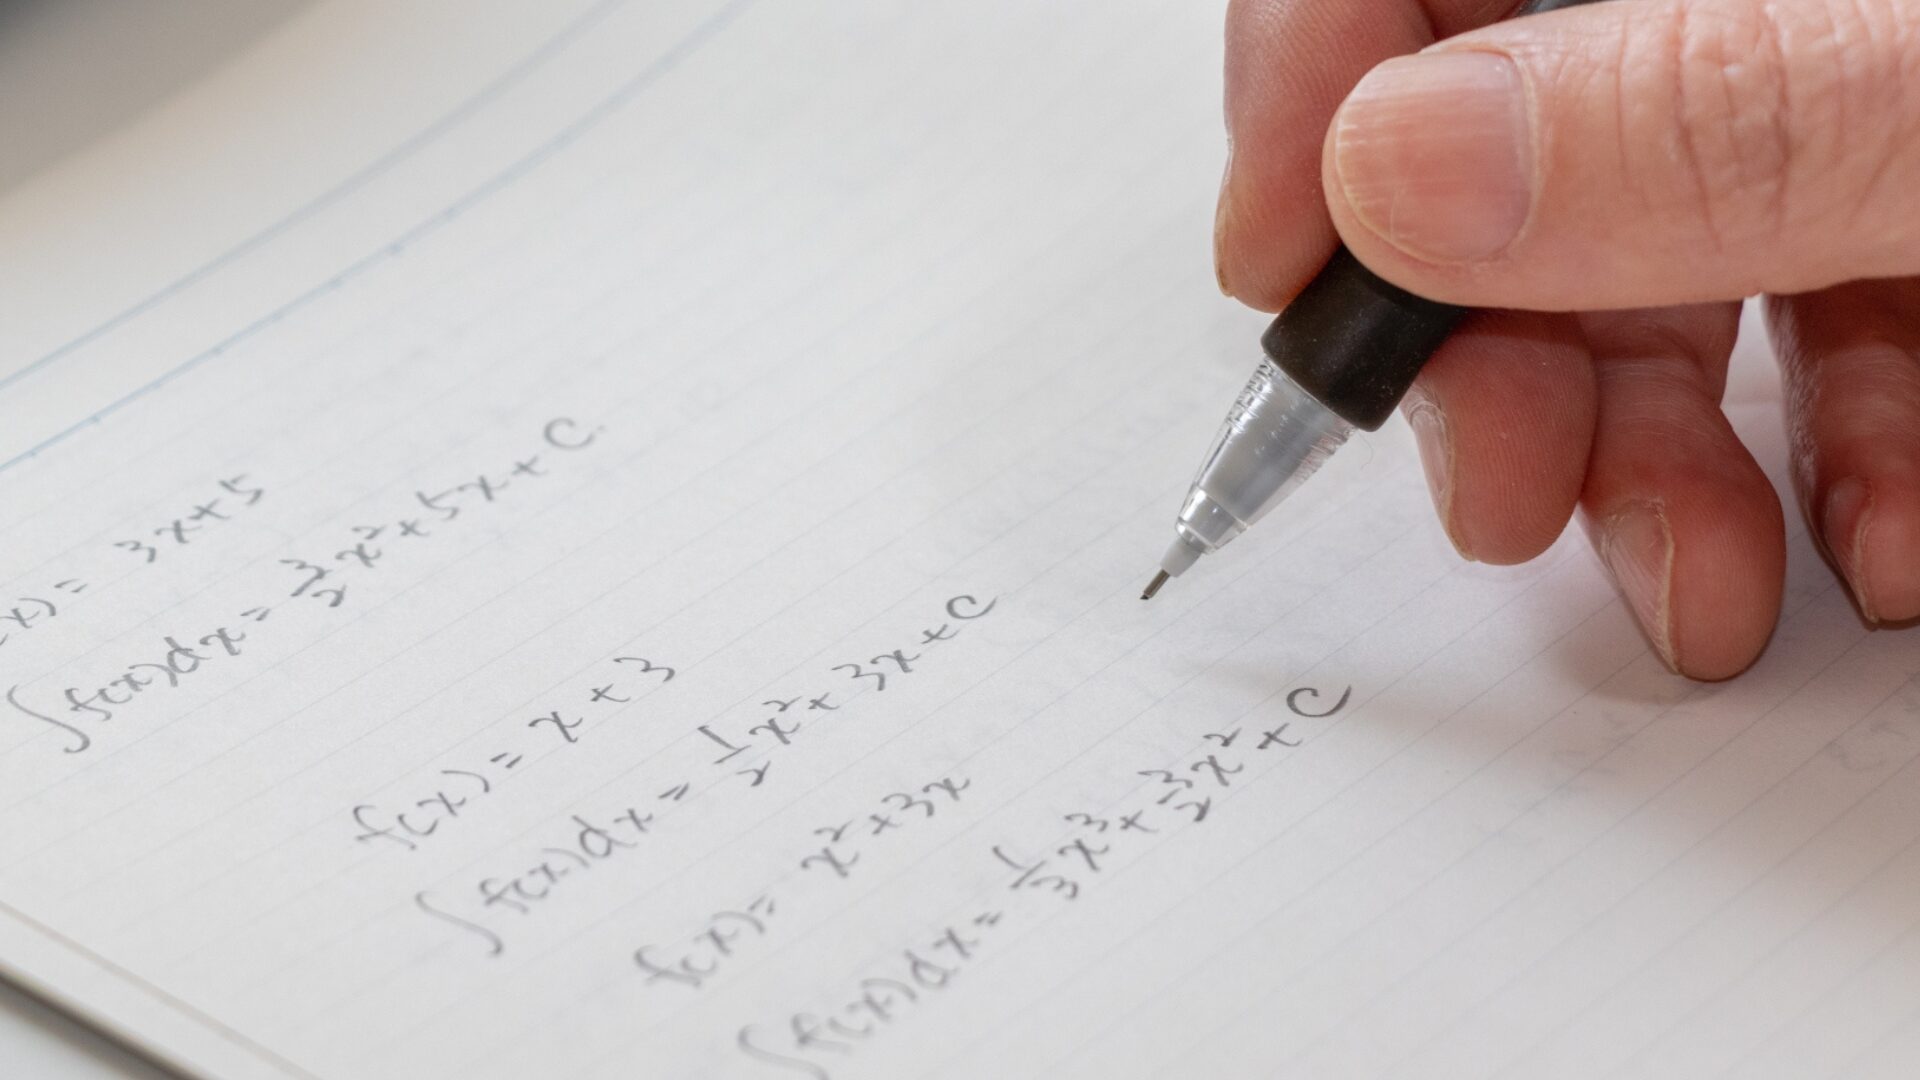 (x) = 3x+5
∫f(x)dx = 3/2 x² + 5x + C.
f(x) = x + 3
∫f(x)dx = 1/2 x² + 3x + C
f(x) = x² + 3x
∫f(x)dx = 1/3 x³ + 3/2 x² + C